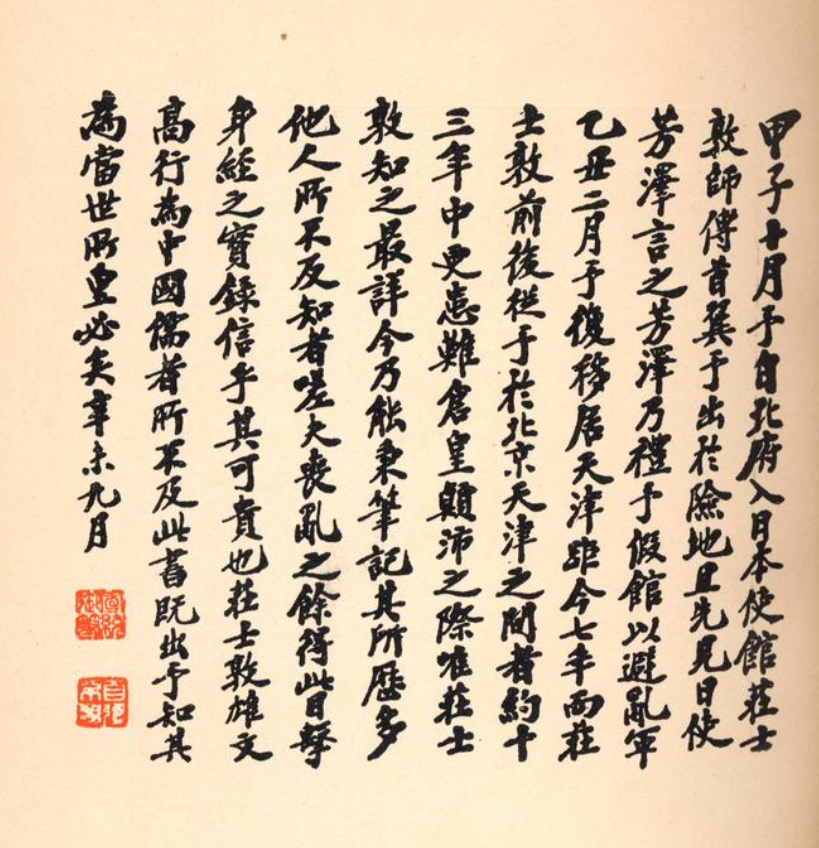 甲子十月予自北府入日本使館莊士
敦師傅首翼予出於險地且先見日使
芳澤言之芳澤乃禮予假館以避亂軍
乙丑二月予復移居天津距今七年而莊
士敦前後從予於北京天津之間者約十
三年中更患難倉皇顛沛之際唯莊士
敦知之最詳今乃能秉筆記其所歷多
他人所不及知者嗟夫喪亂之餘得此目擊
身經之實錄信乎其可貴也莊士敦雄文
高行為中國儒者所不及此書既出予知其
為當世所重必矣辛未九月
宣統御筆
自強不息